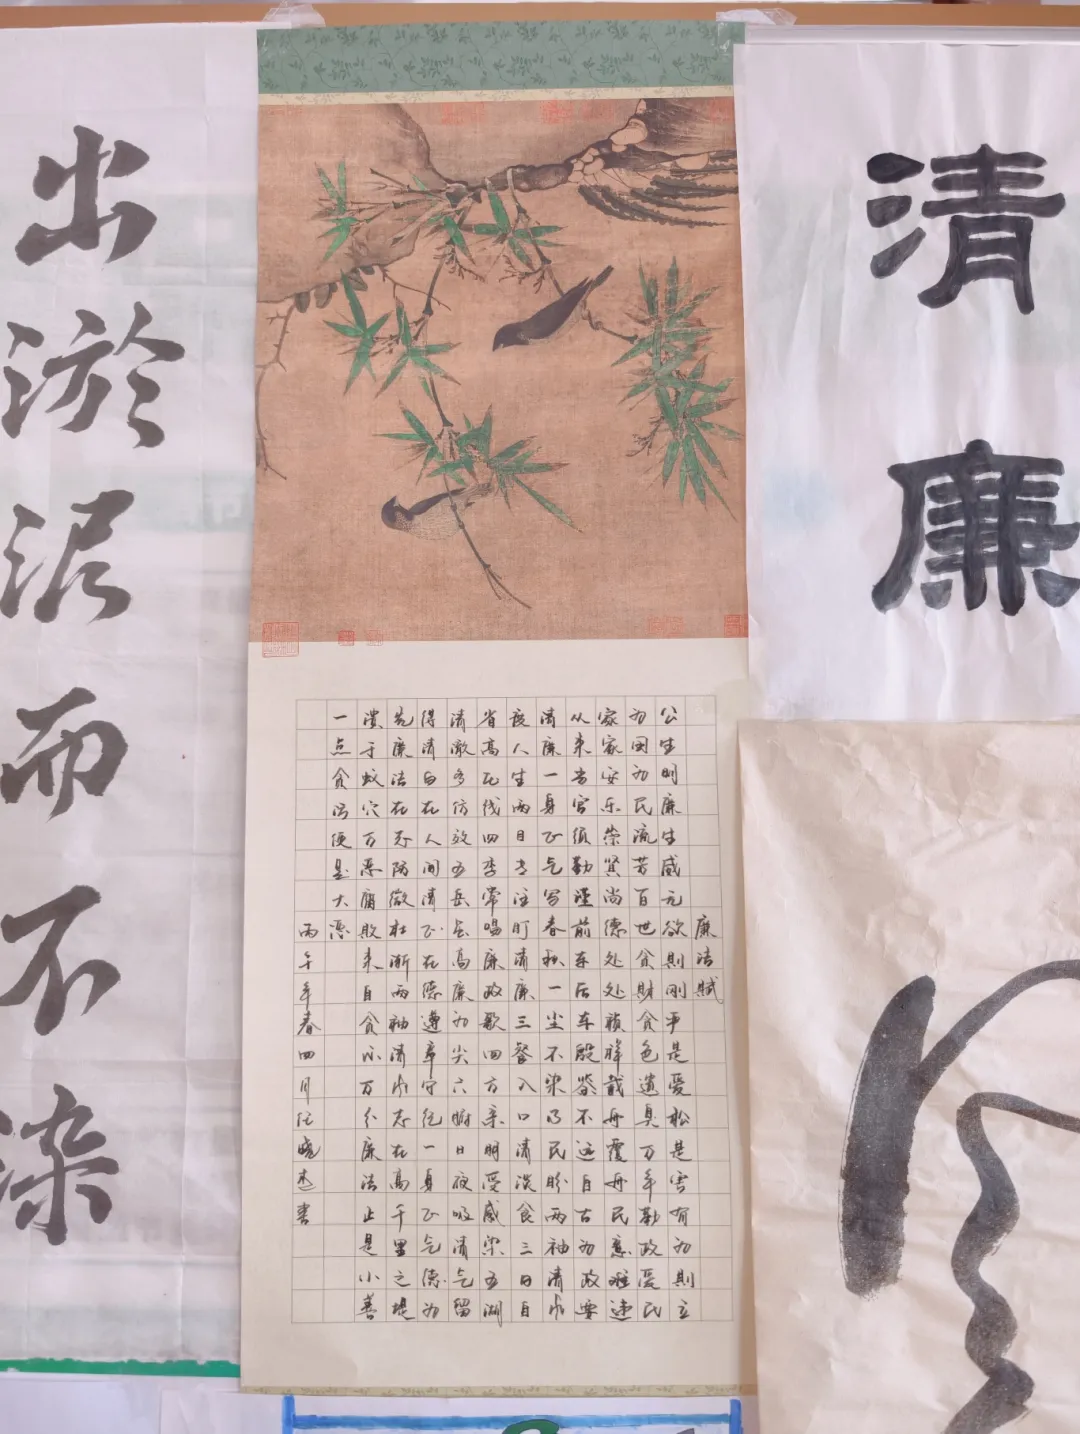 出淤泥而不染
廉洁赋
公生明廉生威无欲則刚严是爱松是害有为則立
为国为民流芳百世贪财贪色遗臭万年勤政爱民
家家安乐荣贤尚德处处祯祥载舟覆舟民意难违
从来当官须勤谨前车后车殷鉴不远自古为政要
清廉一身正气写春秋一尘不染乃民盼两袖清水
度人生两目专注盯清廉三餐入口清淡食三日自
省高压线四季常唱廉政歌四方亲明受感染五湖
清澈多仿效五岳长高廉为尖六腑日夜吸清气留
得清白在人间清正在德遵章守纪一身正气德为
先廉洁在志防微杜渐两袖清水志在高千里之堤
溃于蚁穴万恶腐败来自贪心万分廉洁止是小善
一点贪污便是大恶
丙午年春四月任晓書
清廉